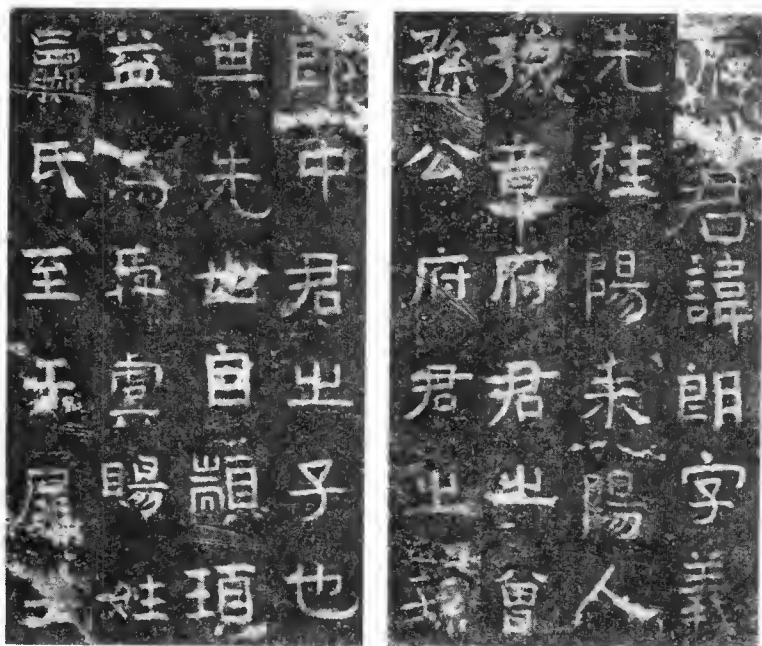 君諱朗字義
先桂陽耒陽人
豫章府君之曾
孫公府君之孫
郎中君之子也
其先世自顓頊
益為舜虞賜姓
嬴氏至于